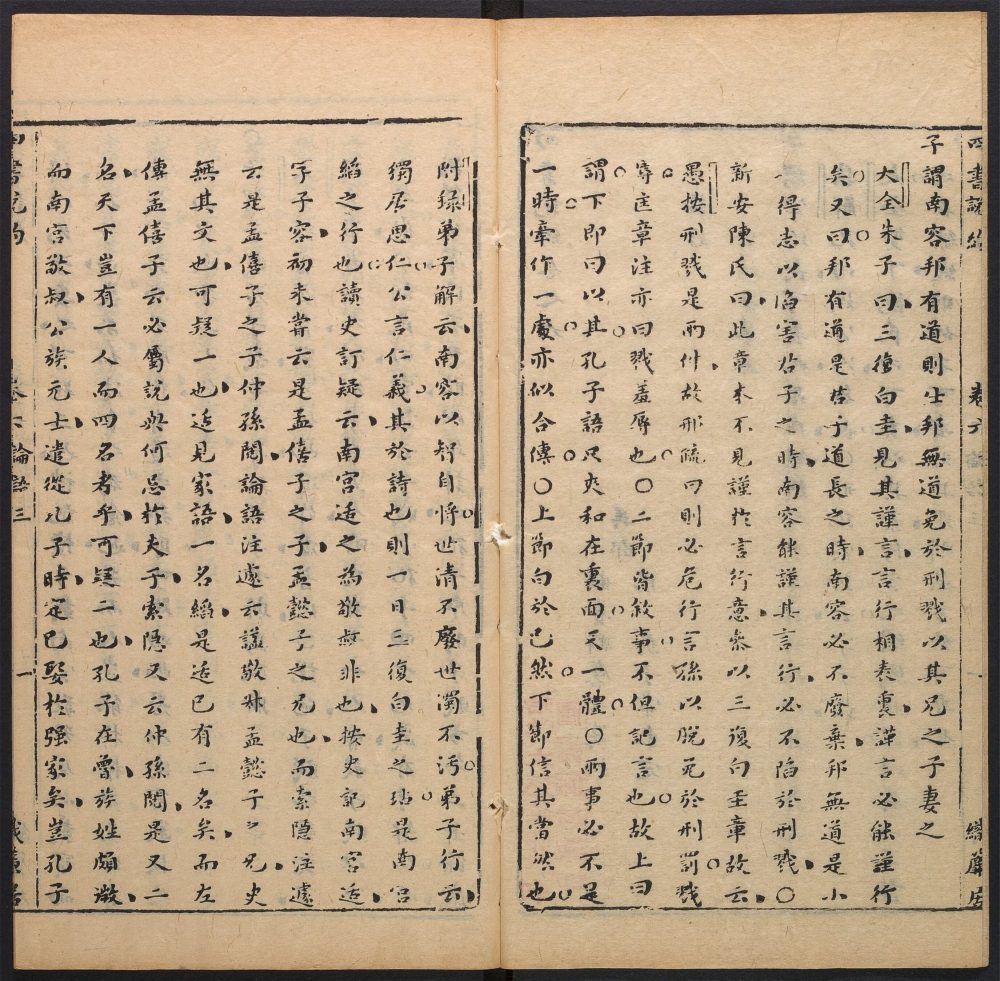 四書說約
卷六
一
織簾居
子謂南容邦有道則仕邦無道免於刑戮以其兄之子妻之
大全朱子曰三復白圭見其謹言言行相表裏謹言必能謹行
矣又曰邦有道是君子道長之時南容必不廢棄邦無道是小
人得志以陷害君子之時南容能謹其言行必不陷於刑戮○
新安陳氏曰此章本不見謹於言行意參以三復白圭章故云
愚按刑戮是兩件故邢疏曰則必危行言孫以脫死於刑罰戮
辱匡章注亦曰戮羞辱也○二節皆敘事不但記言也故上曰
謂下即曰以其孔子語只夾和在裏面天一體○兩事必不是
一時牽作一處亦似合傳○上節句於已然下節信其當然也
附錄弟子解云南容以智自將世清不廢世濁不污弟子行云
獨居思仁公言仁義其於詩也則一日三復白圭之玷是南宮
縚之行也讀史訂疑云南宮适之為敬叔非也按史記南宮适
字子容初未嘗云是孟僖子之子孟懿子之兄也而索隱注遽
云是孟僖子之子仲孫閱論語注遽云諡敬叔孟懿子之兄史
無其文也可疑一也适見家語一名縚是适已有二名矣而左
傳孟僖子云必屬說與何忌於夫子索隱又云仲孫閱是又二
名天下豈有一人而四名者乎可疑二也孔子在魯族姓頗微
而南宮敬叔公族元士遣從孔子時定已娶於强家矣豈孔子
四書說約
卷六論語三
一
織簾居